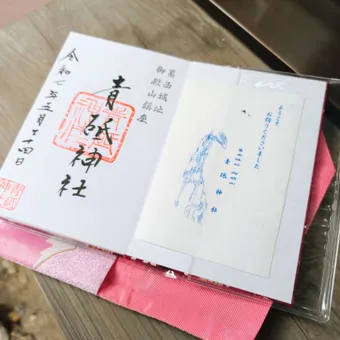 葛西城址
御殿山鎮座
青砥神社
令和七年五月二十四日
ようこそ
お詣りくださいました
青砥神社